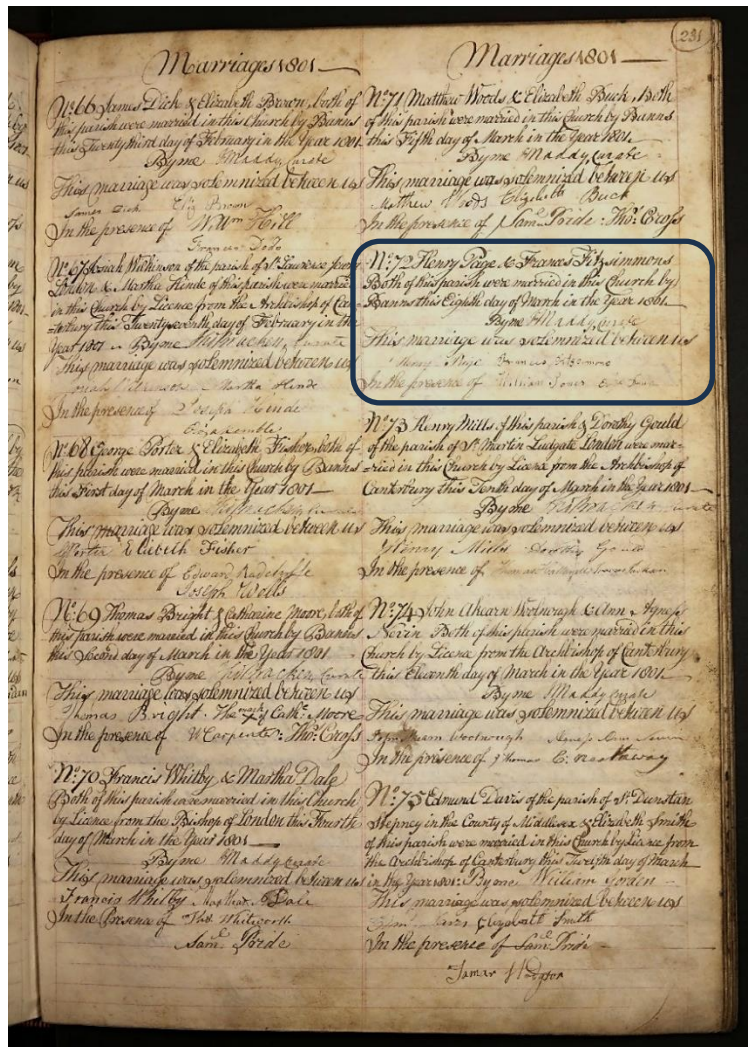 231
Marriages 1801
Nº 66 James Dick & Elizabeth Brown, both of
this parish were married in this Church by Banns
this Twenty third day of February in the Year 1801
By me H Maddy, Curate
This marriage was solemnized between us
James Dick Eliz Brown
In the presence of Willm Hill
Frances
Nº 67 Josiah Wilkinson of the parish of St Laurence Jewry
London & Martha Hinde of this parish were married
in this Church by Licence from the Archbishop of Can-
terbury this Twenty seventh day of February in the
Year 1801 By me Curate
This marriage was solemnized between us
Martha Hinde
In the presence of Joseph Hinde
Nº 68 George Porter & Elizabeth Fisher, both of
this parish were married in this Church by Banns
this First day of March in the Year 1801
By me
This marriage was solemnized between us
Porter Elizabeth Fisher
In the presence of Edward Radclyffe
Joseph Wells
Nº 69 Thomas Bright & Catharine Moore, both of
this parish were married in this Church by Banns
this Second day of March in the Year 1801
By me Curate
This marriage was solemnized between us
Thomas Bright. The mark X of Cathe Moore
In the presence of W Carpenter: Thos Cross
Nº 70 Francis Whitby & Martha Dale
Both of this parish were married in this Church
by Licence from the Bishop of London this Fourth
day of March in the Year 1801
By me H Maddy Curate
This marriage was solemnized between us
Francis Whitby Martha Dale
In the Presence of Thos Whitworth
Saml Pride
Marriages 1801
Nº 71 Matthew Woods & Elizabeth Buck, Both
of this parish were married in this Church by Banns
this Fifth day of March in the Year 1801.
By me H Maddy, Curate
This marriage was solemnized between us
Matthew Woods Elizabeth Buck
In the presence of Saml Pride Thos Cross
Nº 72 Henry Page & Frances Fitzsimmons
Both of this parish were married in this Church by
Banns this Eighth day of March in the Year 1801
By me H Maddy, Curate
This marriage was solemnized between us
Henry Page Frances
In the presence of William
Nº 73 Henry Mills of this parish & Dorothy Gould
of the parish of St Martin Ludgate London were mar-
ried in this Church by Licence from the Archbishop of
Canterbury this Tenth day of March in the Year 1801
By me Curate
This marriage was solemnized between us
Henry Mills Dorothy Gould
In the presence of
Nº 74 John Ahearn Woolnough & Ann Agness
Nevin Both of this parish were married in this
Church by Licence from the Archbishop of Canterbury
this Eleventh day of March in the Year 1801
By me H Maddy Curate
This marriage was solemnized between us
John Ahearn Woolnough
In the presence of Thomas C. Northaway
Nº 75 Edmund Davis of the parish of St Dunstan
Stepney in the County of Middlesex & Elizabeth Smith
of this parish were married in this Church by Licence from
the Archbishop of Canterbury this Twelfth day of March
in the Year 1801: By me William Gorden
This marriage was solemnized between us
Davis Elizabeth Smith
In the presence of Saml Pride
Tamar Hodgson